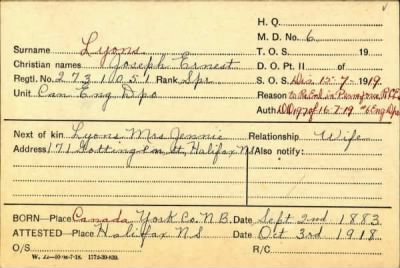 H. Q.
M. D. No. 6
Surname Lyons T. O. S. 19
Christian names Joseph Ernest D. O. Pt. II of
Regtl. No. 2731051 Rank Spr. S. O. S. Dis. 15-7-1919.
Unit Can Eng Dpo Reason to
Auth. D.D. 197 of 16-7-19 #6 Eng Dpo
Next of kin Lyons Mrs Jennie Relationship Wife
Address 171 Gottingen St, Halifax NS Also notify:
BORN—Place Canada York Co. N.B. Date Sept 2nd 1883
ATTESTED—Place Halifax NS Date Oct 3rd 1918
O/S R/C